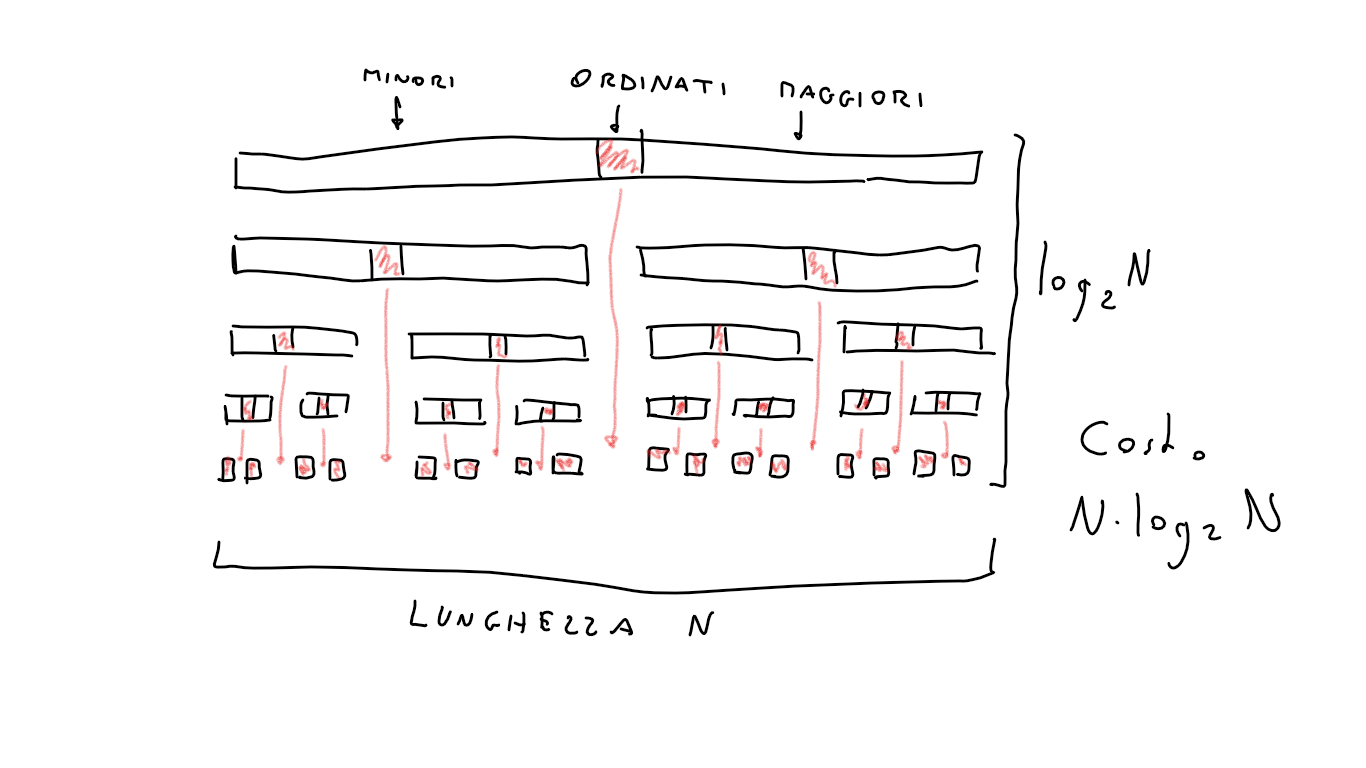 MINORI ORDINATI MAGGIORI
log₂N
Costo
N·log₂ N
LUNGHEZZA N